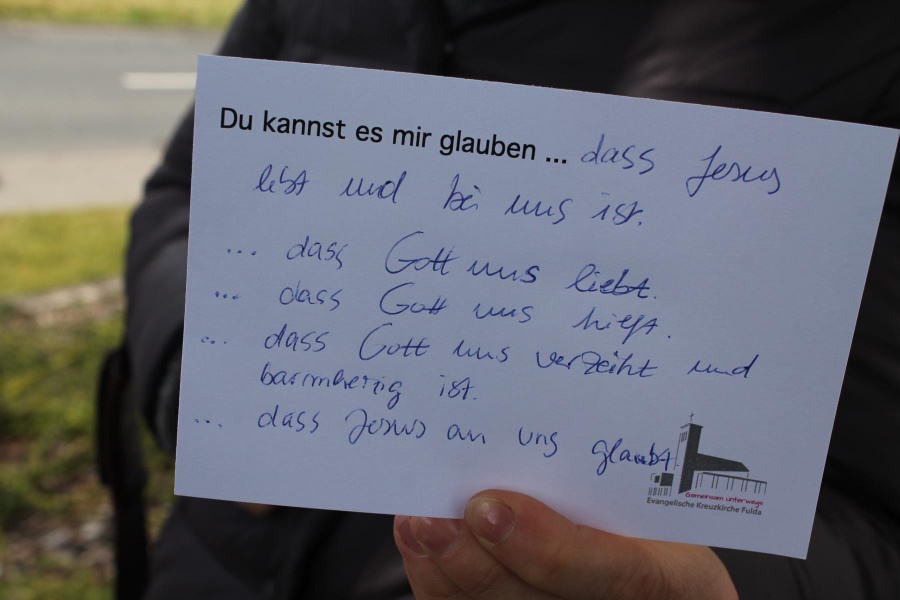 Du kannst es mir glauben ... dass Jesus
lebt und bei uns ist.
... dass Gott uns liebt.
... dass Gott uns hilft.
... dass Gott uns verzeiht und
barmherzig ist.
... dass Jesus an uns glaubt
Gemeinsam unterwegs
Evangelische Kreuzkirche Fulda